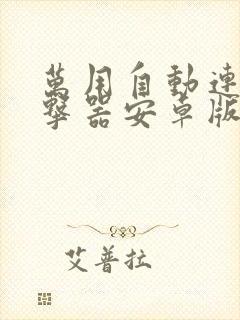 萬用自動連
擊器安卓版
艾普拉